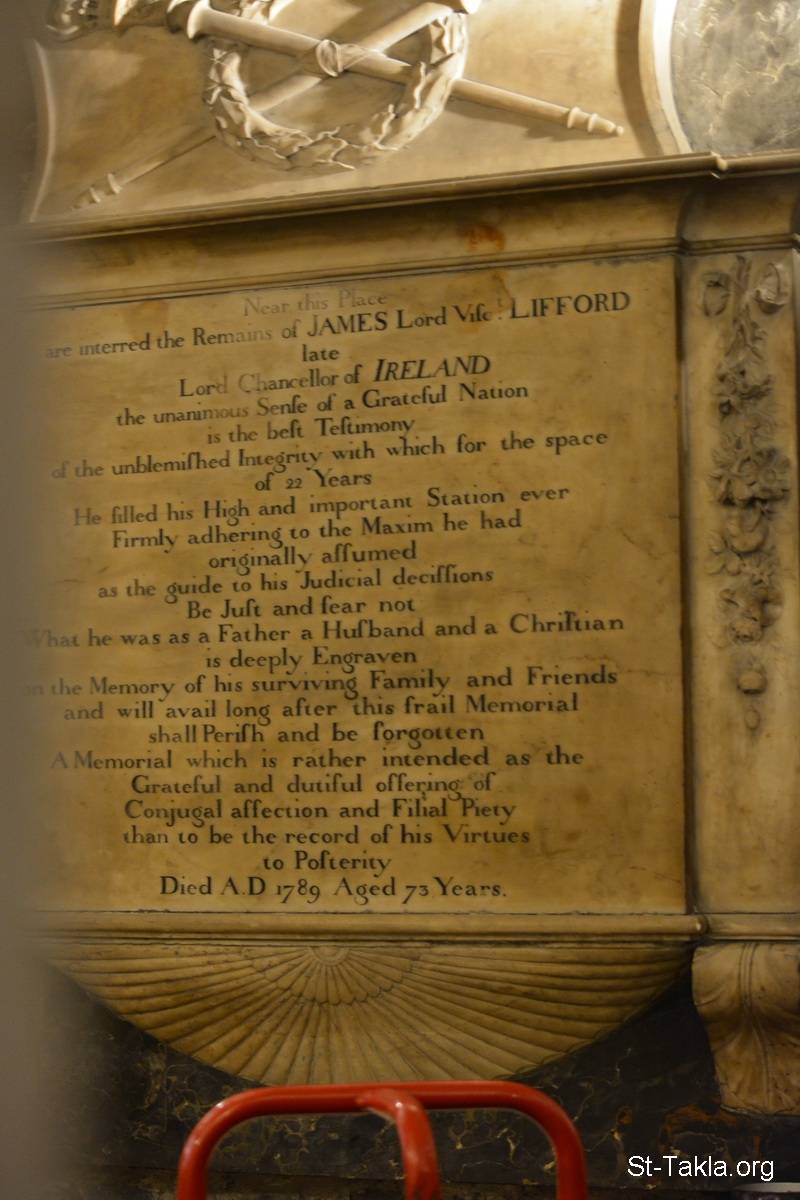 Near this Place
are interred the Remains of JAMES Lord Viſc.t LIFFORD
late
Lord Chancellor of IRELAND
the unanimous Senſe of a Grateful Nation
is the beſt Teſtimony
of the unblemiſhed Integrity with which for the space
of 22 Years
He filled his High and important Station ever
Firmly adhering to the Maxim he had
originally aſſumed
as the guide to his Judicial deciſſions
Be Juſt and fear not
What he was as a Father a Huſband and a Chriſtian
is deeply Engraven
on the Memory of his surviving Family and Friends
and will avail long after this frail Memorial
shall Periſh and be forgotten
A Memorial which is rather intended as the
Grateful and dutiful offering of
Conjugal affection and Filial Piety
than to be the record of his Virtues
to Poſterity
Died A.D 1789 Aged 73 Years.
St-Takla.org